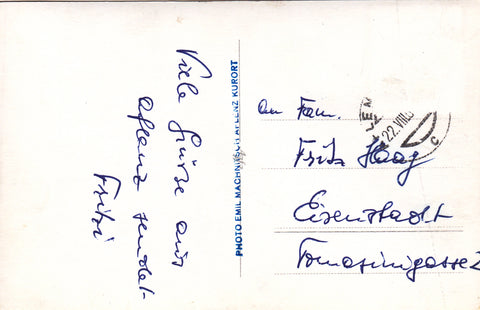 Viele Grüße aus
Aflenz sendet
Fritzi
PHOTO EMIL AFLENZ KURORT
An Fam.
Fritz Haag
Eisenstadt
Tomasinigasse 2
22.VIII.
c